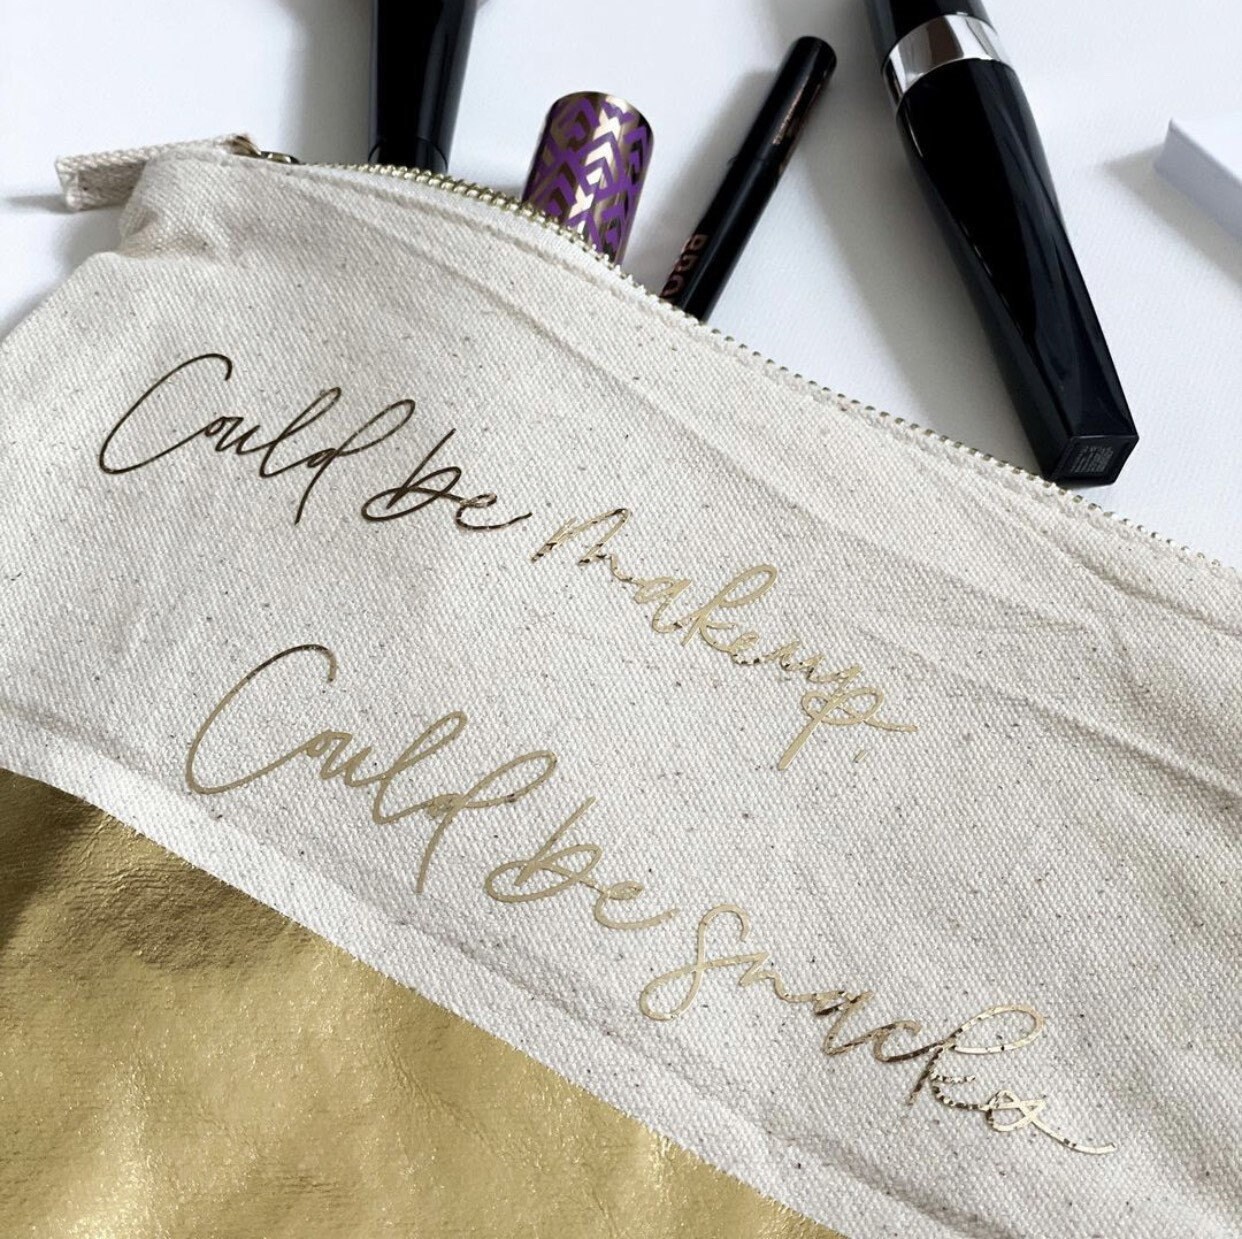 Could be makeup,
Could be snacks